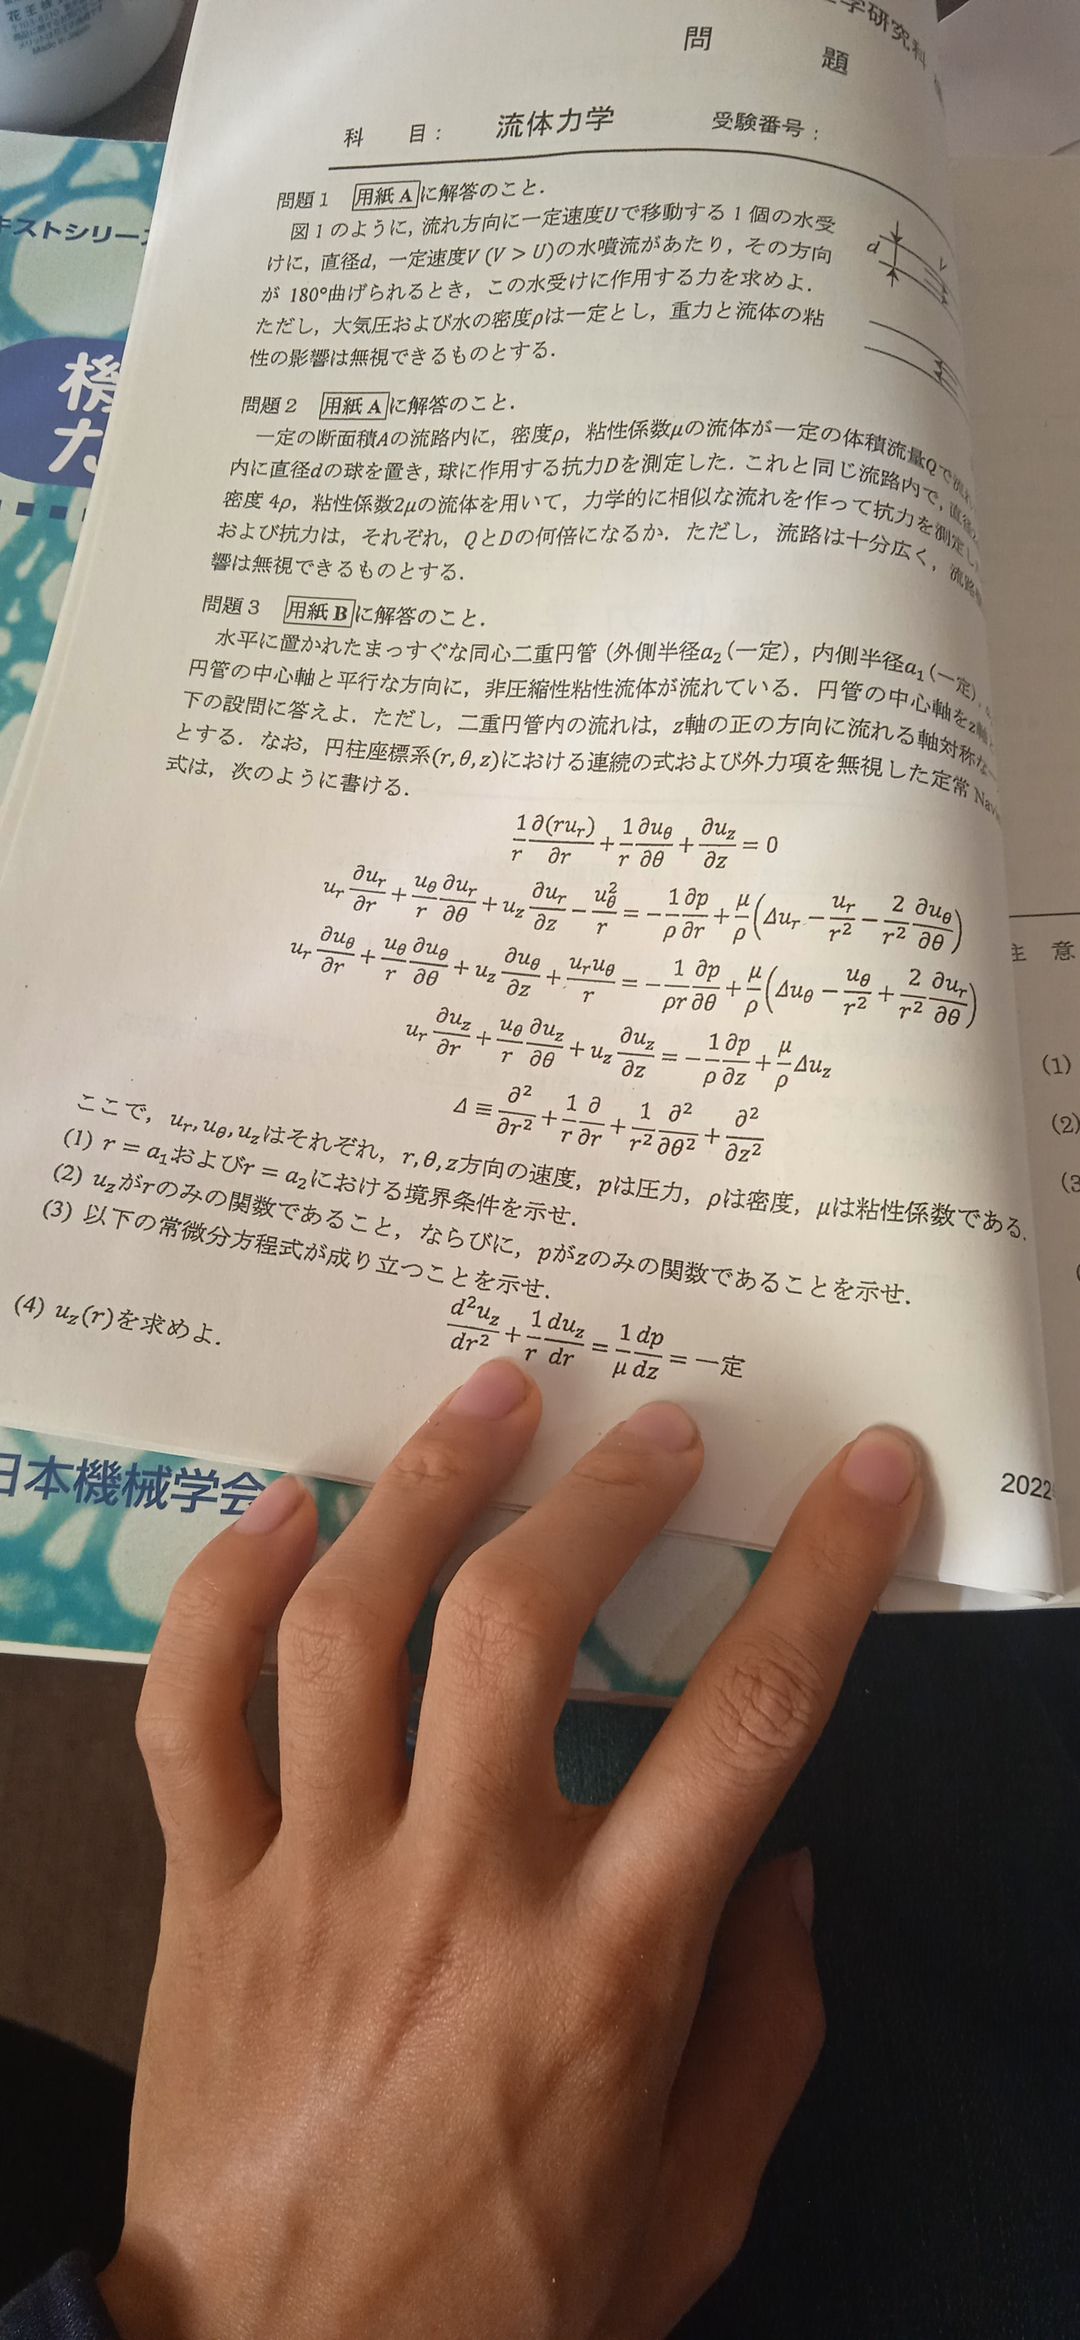 花王株
Made in Japan
学研究科
問 題
科 目： 流体力学 受験番号：
キストシリー
機
力
問題1 用紙Aに解答のこと．
図1のように, 流れ方向に一定速度Uで移動する1個の水受
けに, 直径d, 一定速度V (V > U)の水噴流があたり, その方向
が 180°曲げられるとき, この水受けに作用する力を求めよ.
ただし, 大気圧および水の密度ρは一定とし, 重力と流体の粘
性の影響は無視できるものとする.
d
V
問題2 用紙Aに解答のこと．
一定の断面積Aの流路内に, 密度ρ, 粘性係数μの流体が一定の体積流量Qで流れ
内に直径dの球を置き, 球に作用する抗力Dを測定した. これと同じ流路内で, 直径
密度 4ρ, 粘性係数2μの流体を用いて, 力学的に相似な流れを作って抗力を測定し
および抗力は, それぞれ, QとDの何倍になるか. ただし, 流路は十分広く, 流路
響は無視できるものとする.
問題3 用紙Bに解答のこと．
水平に置かれたまっすぐな同心二重円管 (外側半径a₂ (一定), 内側半径a₁ (一定),
円管の中心軸と平行な方向に, 非圧縮性粘性流体が流れている. 円管の中心軸をz軸
下の設問に答えよ. ただし, 二重円管内の流れは, z軸の正の方向に流れる軸対称な
とする. なお, 円柱座標系(r, θ, z)における連続の式および外力項を無視した定常 Nav
式は, 次のように書ける.
1/r ∂(ruᵣ)/∂r + 1/r ∂u_θ/∂θ + ∂u_z/∂z = 0
uᵣ ∂uᵣ/∂r + u_θ/r ∂uᵣ/∂θ + u_z ∂uᵣ/∂z − u_θ²/r = − 1/ρ ∂p/∂r + μ/ρ (Δuᵣ − uᵣ/r² − 2/r² ∂u_θ/∂θ)
uᵣ ∂u_θ/∂r + u_θ/r ∂u_θ/∂θ + u_z ∂u_θ/∂z + uᵣu_θ/r = − 1/ρr ∂p/∂θ + μ/ρ (Δu_θ − u_θ/r² + 2/r² ∂uᵣ/∂θ)
uᵣ ∂u_z/∂r + u_θ/r ∂u_z/∂θ + u_z ∂u_z/∂z = − 1/ρ ∂p/∂z + μ/ρ Δu_z
Δ ≡ ∂²/∂r² + 1/r ∂/∂r + 1/r² ∂²/∂θ² + ∂²/∂z²
ここで, uᵣ, u_θ, u_zはそれぞれ, r, θ, z方向の速度, pは圧力, ρは密度, μは粘性係数である.
(1) r = a₁およびr = a₂における境界条件を示せ.
(2) u_zがrのみの関数であること, ならびに, pがzのみの関数であることを示せ.
(3) 以下の常微分方程式が成り立つことを示せ.
d²u_z/dr² + 1/r du_z/dr = 1/μ dp/dz = 一定
(4) u_z(r)を求めよ.
2022
日本機械学会
意
(1)
(2)
(3